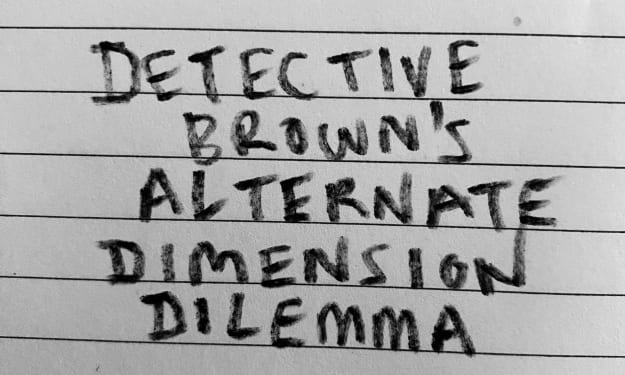 DETECTIVE
BROWN'S
ALTERNATE
DIMENSION
DILEMMA